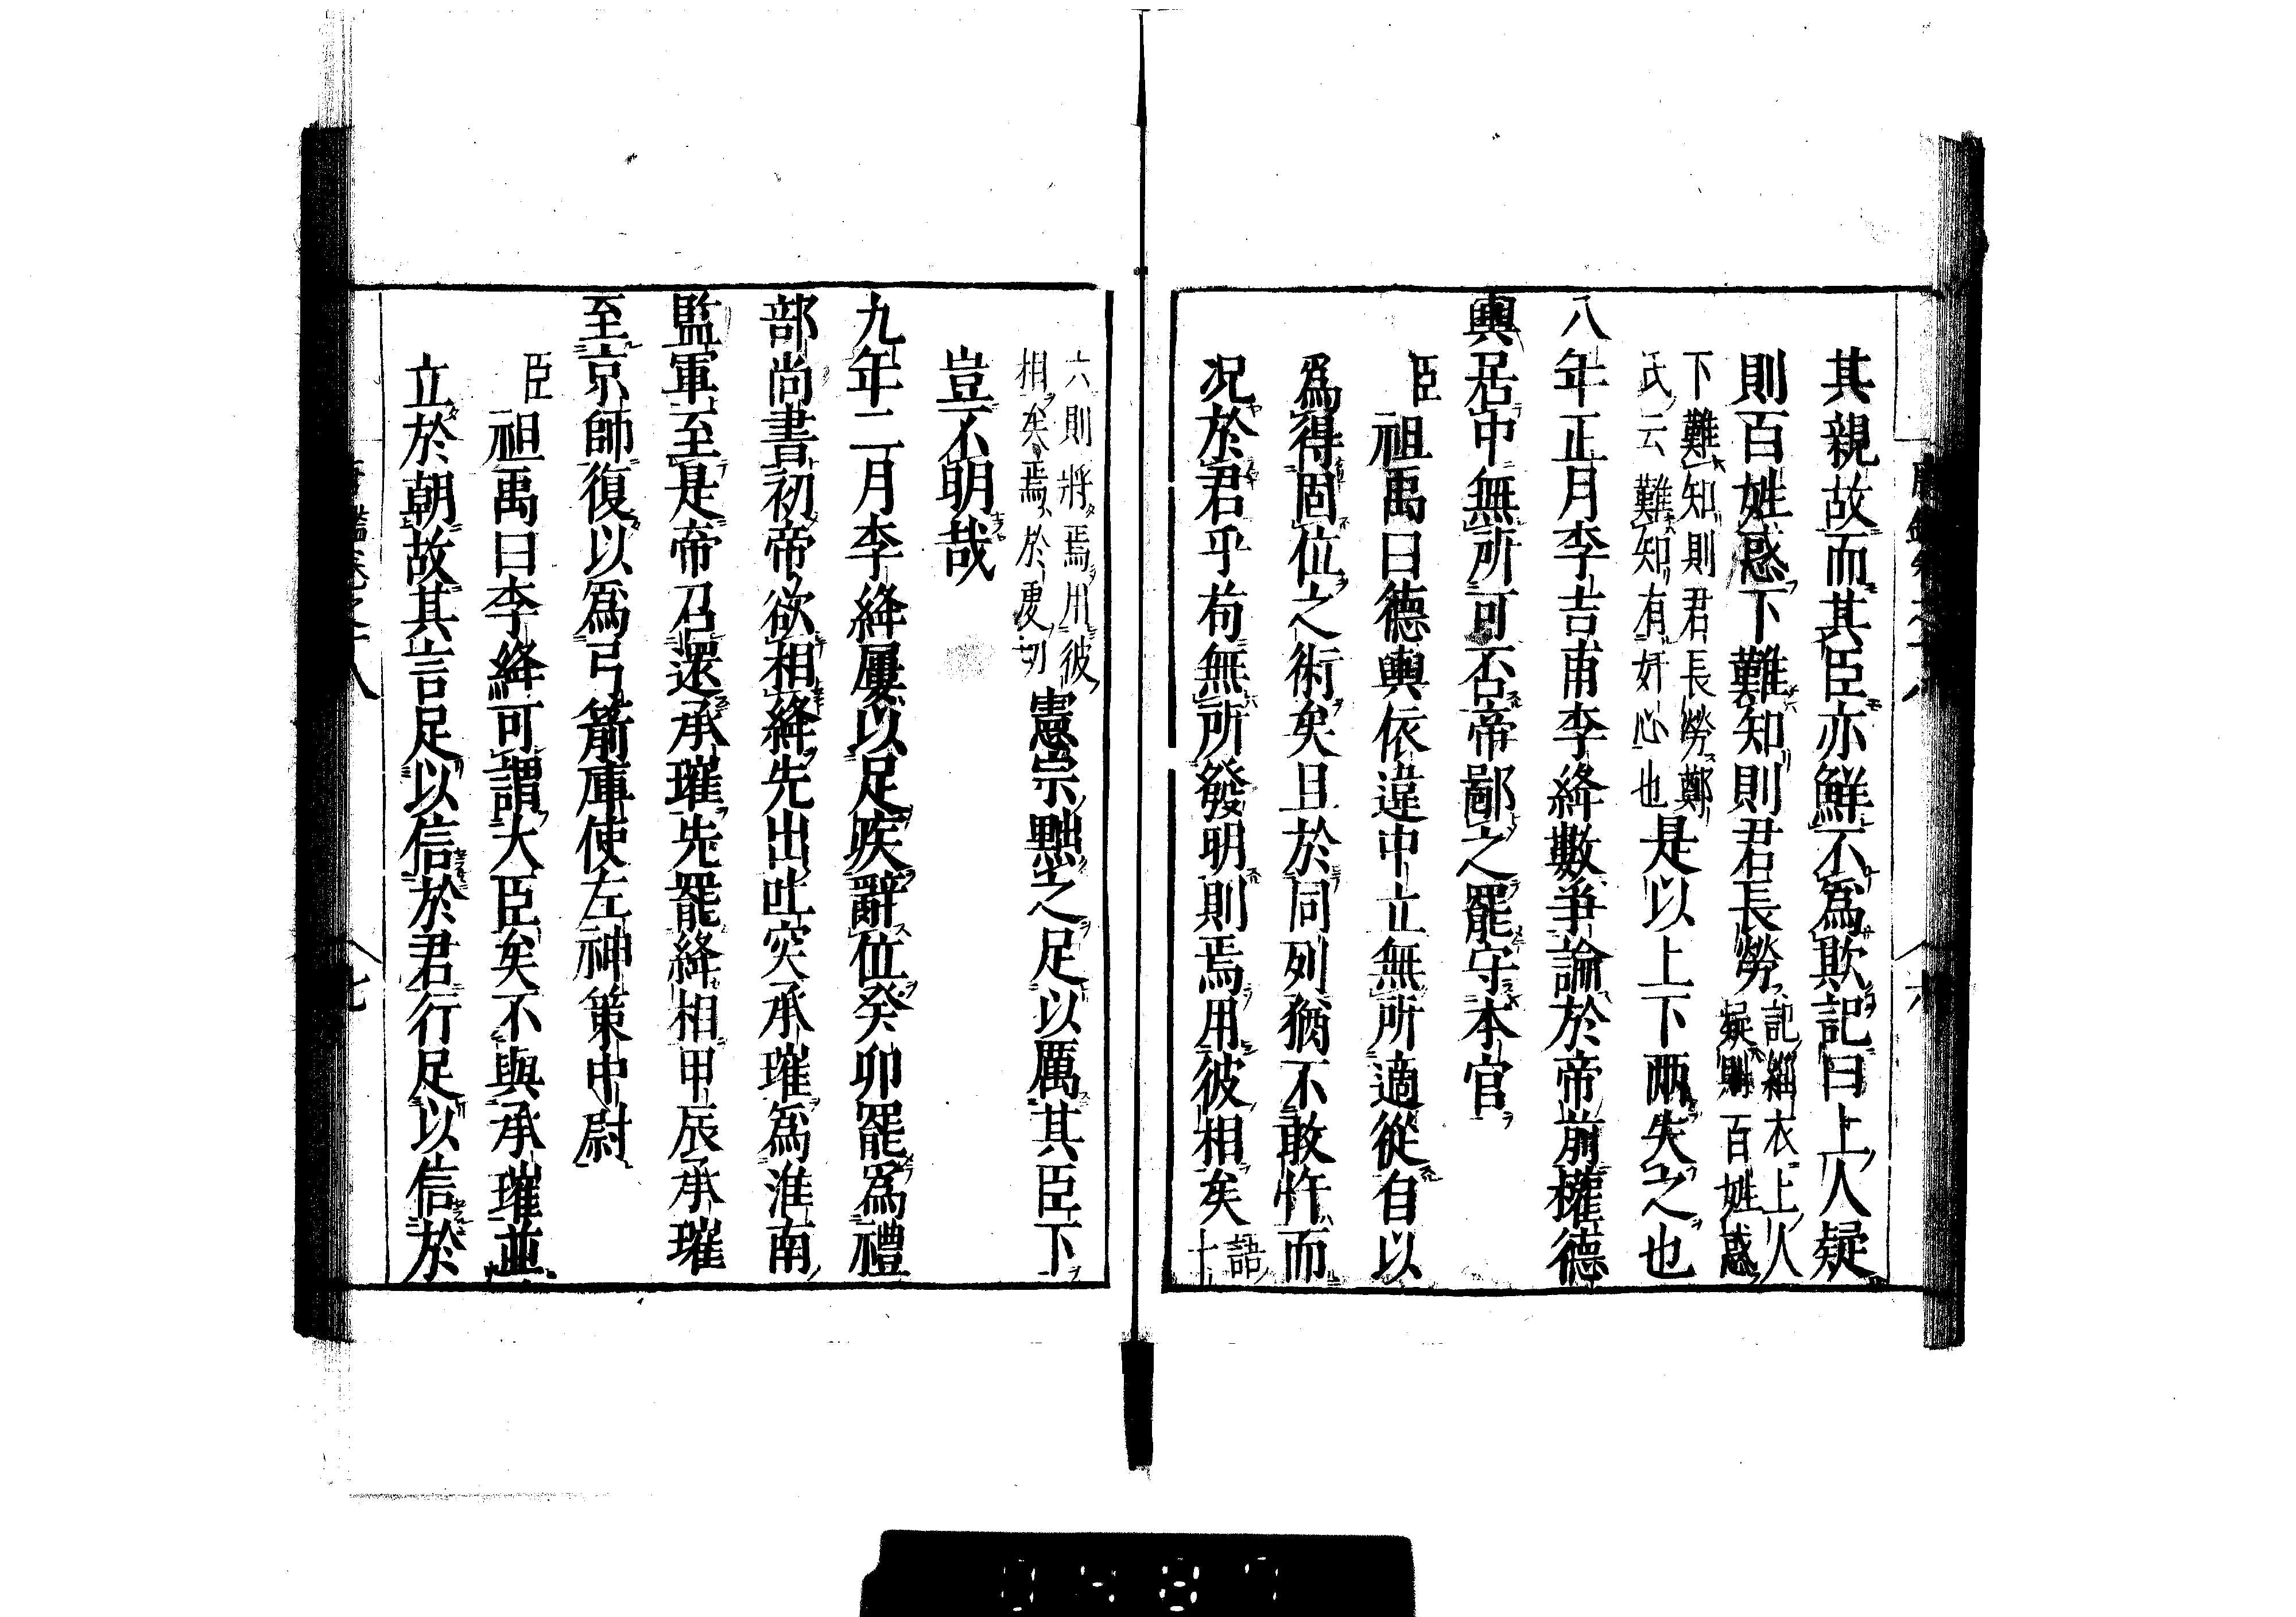 其親故而其臣亦鮮不爲欺記曰上人疑
則百姓惑下難知則君長勞記緇衣上人疑則百姓惑
下難知則君長勞鄭氏云難知有奸心也是以上下兩失之也
八年正月李吉甫李絳數爭論於帝前權德
輿居中無所可否帝鄙之罷守本官
臣祖禹曰德輿依違中立無所適從自以
爲得固位之術矣且於同列猶不敢忤而
况於君乎苟無所發明則焉用彼相矣語十
六則將焉用彼相矣焉於虔切憲宗黜之足以厲其臣下
豈不明哉
九年二月李絳屢以足疾辭位癸卯罷爲禮
部尚書初帝欲相絳先出吐突承璀爲淮南
監軍至是帝召還承璀先罷絳相甲辰承璀
至京師復以爲弓箭庫使左神策中尉
臣祖禹曰李絳可謂大臣矣不與承璀並
立於朝故其言足以信於君行足以信於